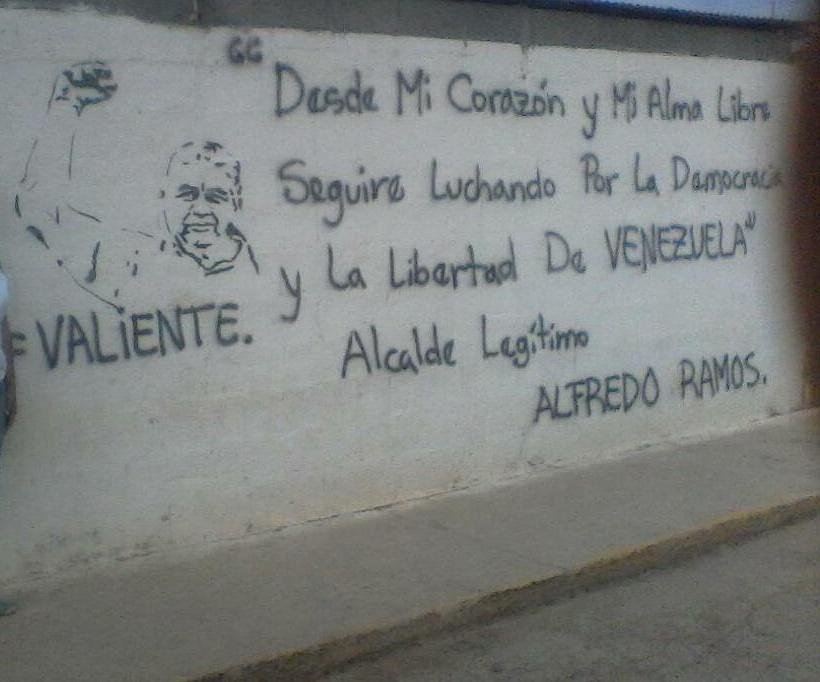 "Desde Mi Corazón y Mi Alma Libre
Seguire Luchando Por La Democracia
y La Libertad De VENEZUELA"
VALIENTE.
Alcalde Legítimo
ALFREDO RAMOS.